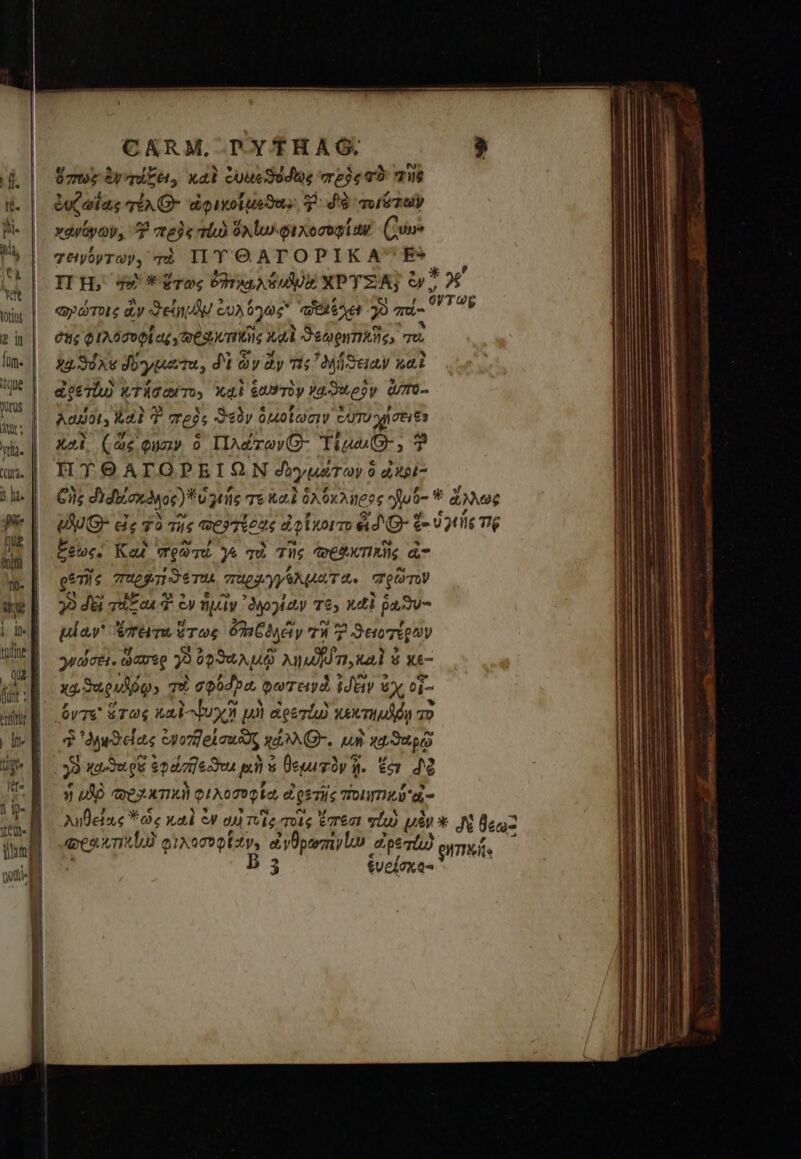 CARM. PYTHAG. 9
ὅπως ἐν τάξει, καὶ εὐμεθόδως πρὸς τὸ τῆς
εὐζωΐας τέλΘ ἀφικοίμεθα. τῶν δὲ τοιούτων
κανόνων, τῶν πρὸς τὴν ὅλην φιλοσοφίαν συν-
τεινόντων, τὰ ΠΥΘΑΓΟΡΙΚΑ ΕΠ
ΠΗ, τὰ * οὕτως ἐπικαλούμενα ΧΡΥΣΑ, ἐν * ὄντως
πρώτοις ἂν θείημεν εὐλόγως· περιέχει γὰρ πά-
σης φιλοσοφίας, πρακτικῆς καὶ θεωρητικῆς, τὰ
καθόλου δόγματα, δι' ὧν ἄν τις ἀλήθειαν καὶ
ἀρετὴν κτήσαιτο, καὶ ἑαυτὸν καθαρὸν ἀπο-
λάβοι, καὶ τῆς πρὸς θεὸν ὁμοίωσιν εὐτυχήσειε
καὶ, (ὥς φησιν ὁ ΠλάτωνΘ ΤίμαιΘ, ὁ τῶν
ΠΥΘΑΓΟΡΕΙΩΝ δογμάτων ὁ ἀκρι-
βὴς διδάσκαλος) * ὑγιής τε καὶ ὁλόκληρος γενό- * ἄλλως
μενΘ εἰς τὸ τῆς προτέρας ἀφίκοιτο εἶδΘ ἕ- ὑγιής τις
ξεως. Καὶ πρῶτά γε τὰ τῆς πρακτικῆς ἀ-
ρετῆς παρατίθεται παραγγέλματα. πρῶτον
γὰρ δεῖ τάξαι τὴν ἐν ἡμῖν ἀλογίαν τε, καὶ ῥαθυ-
μίαν· ἔπειτα οὕτως ἐπιβάλλειν τῇ τῶν θειοτέρων
γνώσει. ὥσπερ γὰρ ὀφθαλμῷ λημῶντι, καὶ οὐ κε-
καθαρμένῳ, τὰ σφόδρα φωτεινὰ ἰδεῖν οὐχ οἷ-
όντε· οὕτως καὶ ψυχῇ μὴ ἀρετὴν κεκτημένῃ τὸ
τῆς ἀληθείας ἐνοπτρίσασθαι κάλλΘ. μὴ καθαρῷ
γὰρ καθαροῦ ἐφάπτεσθαι μὴ οὐ θεμιτὸν ᾖ. ἔστι δὲ
ἡ μὲν πρακτικὴ φιλοσοφία, ἀρετῆς ποιητική· ἀ-
ληθείας * ὡς καὶ ἐν αὐτοῖς τοῖς ἔπεσι τὴν μὲν * δὲ θεω-
πρακτικὴν φιλοσοφίαν, ἀνθρωπίνην ἀρετὴν ρητική.
B 3 εὑρίσκο-